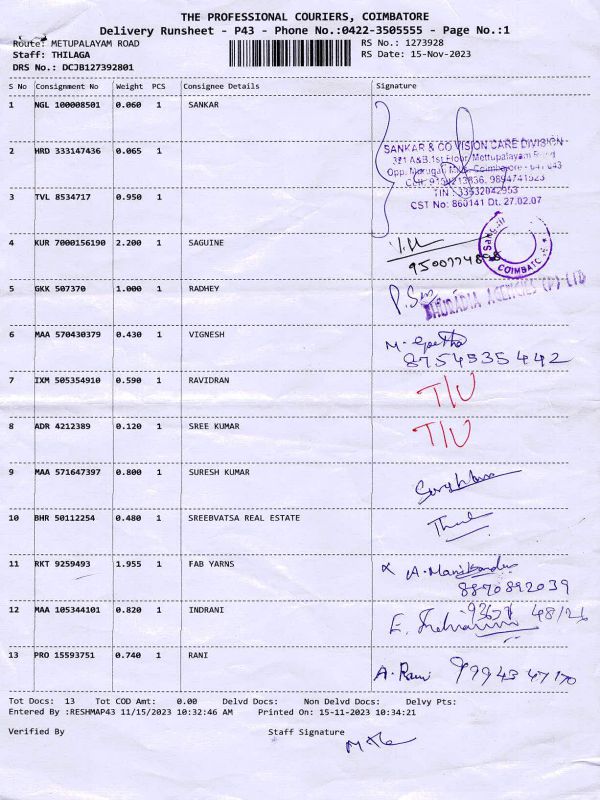 THE PROFESSIONAL COURIERS, COIMBATORE
Delivery Runsheet - P43 - Phone No.:0422-3505555 - Page No.:1
Route: METUPALAYAM ROAD RS No.: 1273928
Staff: THILAGA RS Date: 15-Nov-2023
DRS No.: DCJB127392801
S No Consignment No Weight PCS Consignee Details Signature
1 NGL 100008501 0.060 1 SANKAR
SANKAR & CO VISION CARE DIVISION
2 HRD 333147436 0.065 1
CST No: 860141 Dt. 27.02.07
3 TVL 8534717 0.950 1
4 KUR 7000156190 2.200 1 SAGUINE
COIMBATORE
5 GKK 507370 1.000 1 RADHEY
BHURADIA AGENCIES (P) LTD
6 MAA 570430379 0.430 1 VIGNESH M. Geetha
8754535442
7 IXM 505354910 0.590 1 RAVIDRAN T/U
8 ADR 4212389 0.120 1 SREE KUMAR T/U
9 MAA 571647397 0.800 1 SURESH KUMAR
10 BHR 50112254 0.480 1 SREEBVATSA REAL ESTATE
11 RKT 9259493 1.955 1 FAB YARNS A. Manikandan
8890892039
12 MAA 105344101 0.820 1 INDRANI
13 PRO 15593751 0.740 1 RANI A. Rani 9994347170
Tot Docs: 13 Tot COD Amt: 0.00 Delvd Docs: Non Delvd Docs: Delvy Pts:
Entered By :RESHMAP43 11/15/2023 10:32:46 AM Printed On: 15-11-2023 10:34:21
Verified By Staff Signature